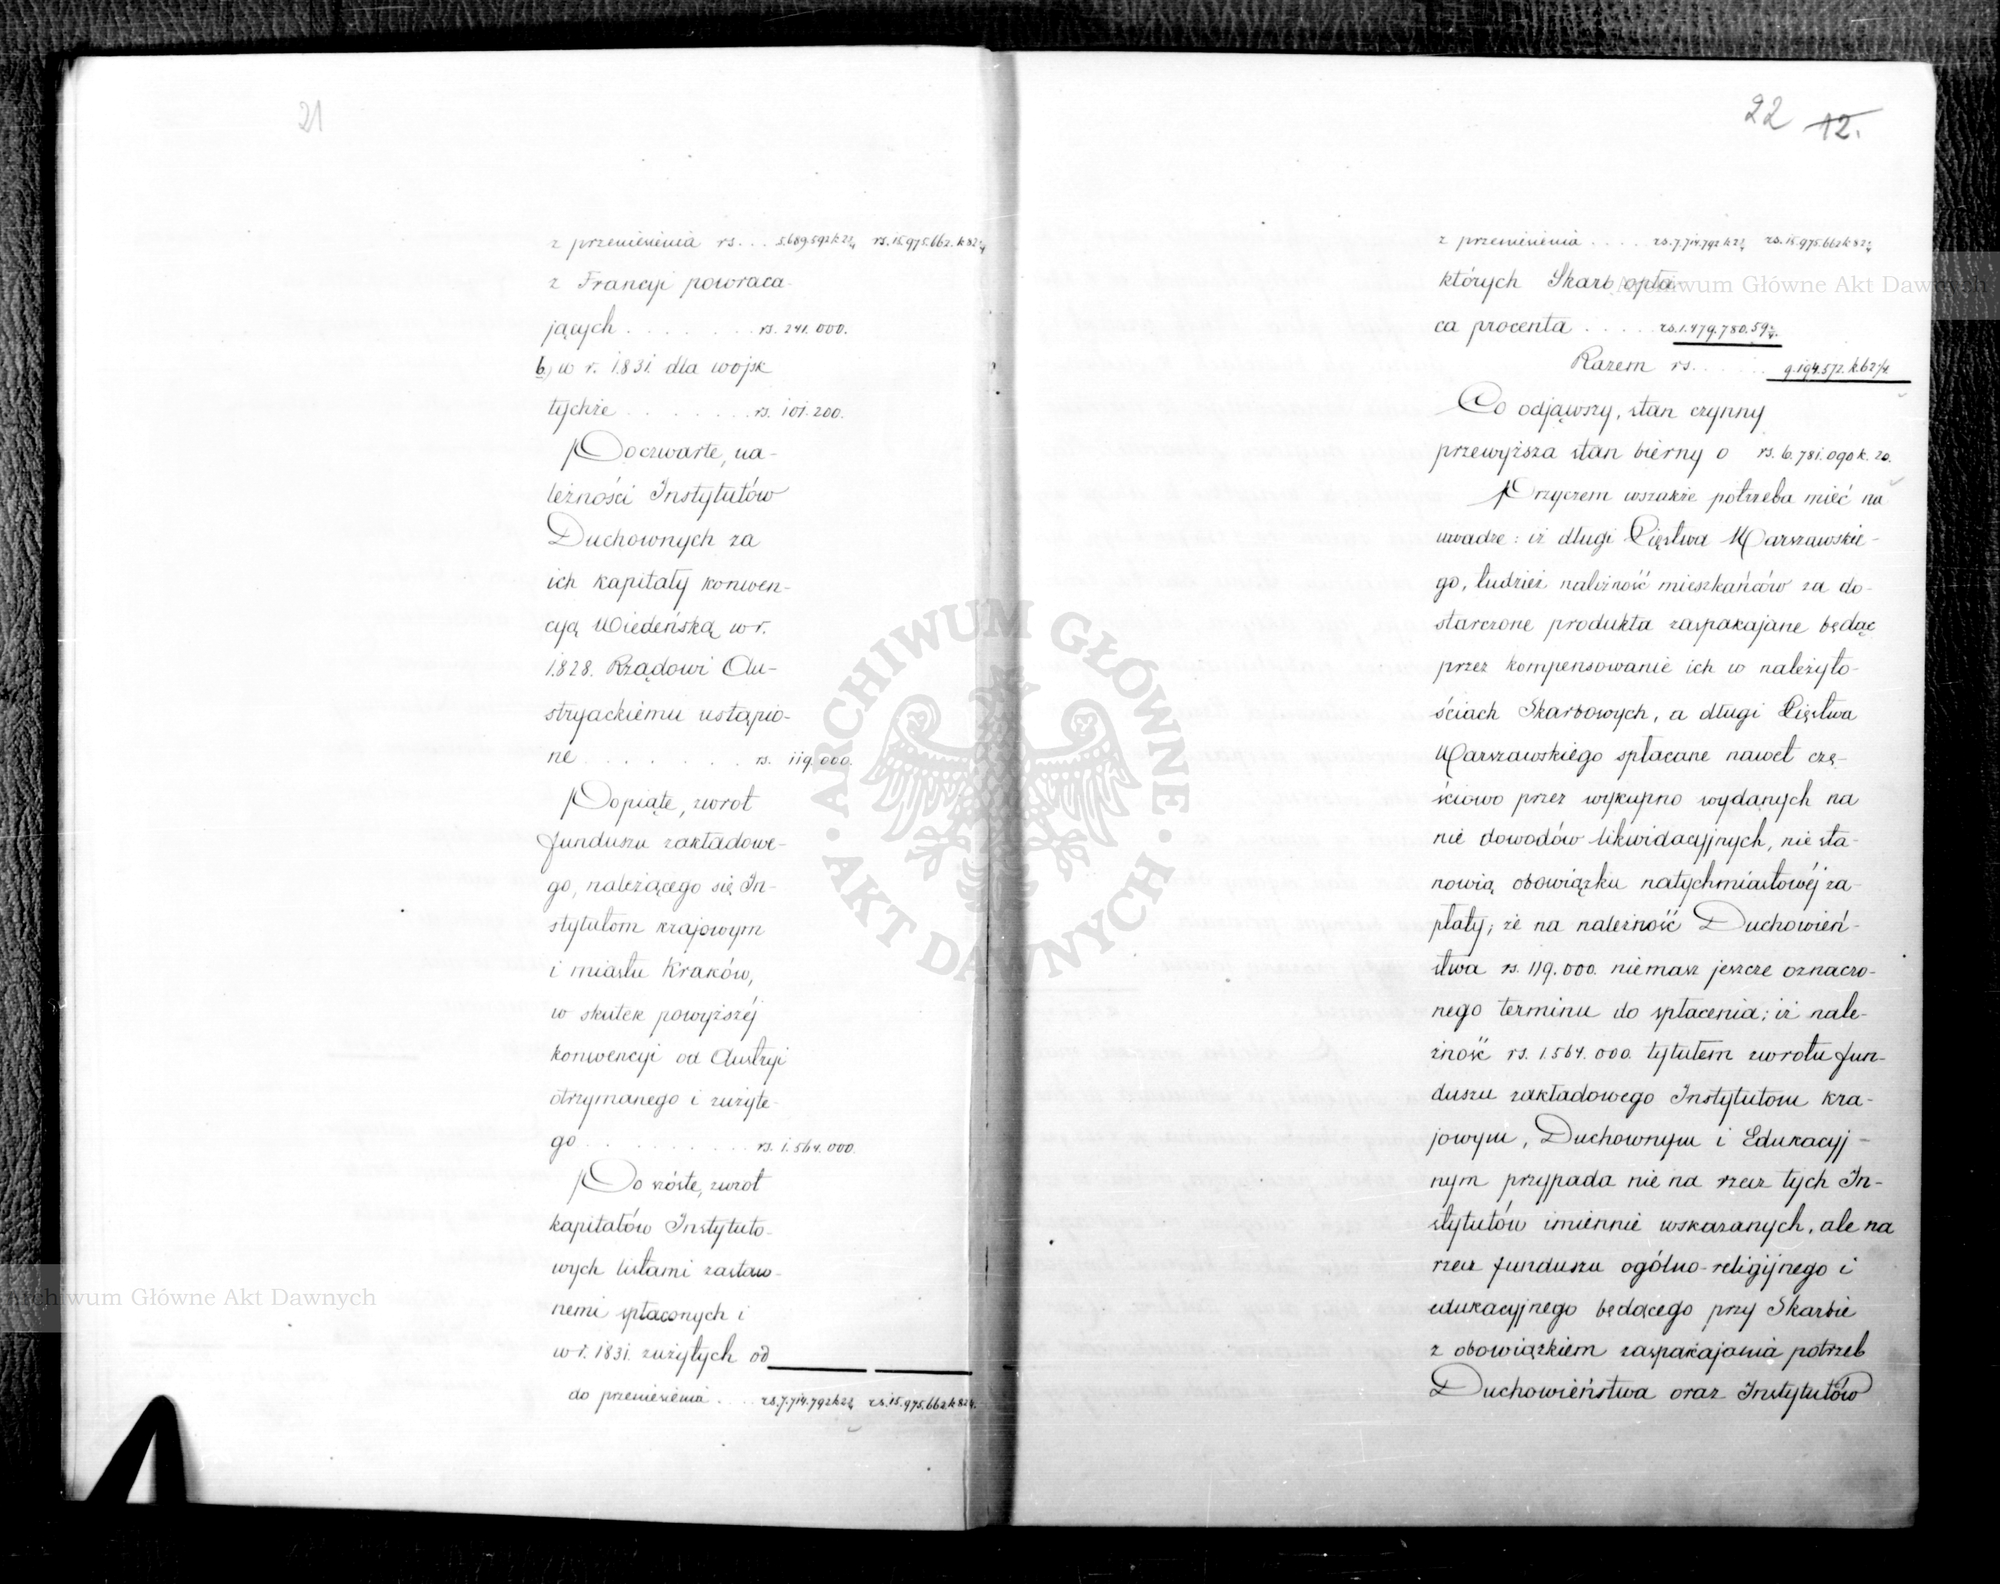 21
z przeniesienia rs... 5.689.592 k.2¼ rs.15.975.662.k 82¼
z Francyi powraca-
jących . . . . . . . rs. 241.000.
b) w r. 1831. dla wojsk
tychże . . . . . . . rs. 101.200.
Poczwarte, na-
leżności Instytutów
Duchownych za
ich kapitały konwen-
cyą Wiedeńską w r.
1828. Rządowi Au-
stryackiemu ustąpio-
ne . . . . . . . rs. 119.000.
Popiąte, zwrot
funduszu zakładowe-
go, należącego się In-
stytutom krajowym
i miastu Kraków,
w skutek powyższéj
konwencyi od Austryi
otrzymanego i zużyte-
go . . . . . . . . rs. 1.564.000.
Po szóste, zwrot
kapitałów Instytuto-
wych listami zastaw-
nemi spłaconych i
w r. 1831. zużytych od
do przeniesienia . . . rs.7.714.792 k2¼ rs.15.975.662.k 82¼.
22 12.
z przeniesienia . . . . rs.7.714.792 k2¼ rs.15.975.662 k 82¼
których Skarb opła-
ca procenta . . . . rs.1.479.780.59¾.
Razem rs. . . . . . 9.194.572.k.62 2/4
Co odjąwszy, stan czynny
przewyższa stan bierny o rs. 6.781.090 k. 20.
Przyczem wszakże potrzeba mieć na
uwadze: iż długi Xięstwa Warszawskie-
go, tudzież należność mieszkańców za do-
starczone produkta zaspakajane będąc
przez kompensowanie ich w należyto-
ściach Skarbowych, a długi Xięstwa
Warszawskiego spłacane nawet czę-
ściowo przez wykupno wydanych na
nie dowodów likwidacyjnych, nie sta-
nowią obowiązku natychmiastowéj za-
płaty; że na należność Duchowień-
stwa rs. 119.000. niemasz jeszcze oznaczo-
nego terminu do spłacenia; iż nale-
żność rs. 1.564.000. tytułem zwrotu fun-
duszu zakładowego Instytutom kra-
jowym, Duchownym i Edukacyj-
nym przypada nie na rzecz tych In-
stytutów imiennie wskazanych, ale na
rzecz funduszu ogólno-religijnego i
edukacyjnego będącego przy Skarbie
z obowiązkiem zaspakajania potrzeb
Duchowieństwa oraz Instytutów
Archiwum Główne Akt Dawnych
Archiwum Główne Akt Dawnych
ARCHIWUM GŁÓWNE · AKT DAWNYCH ·